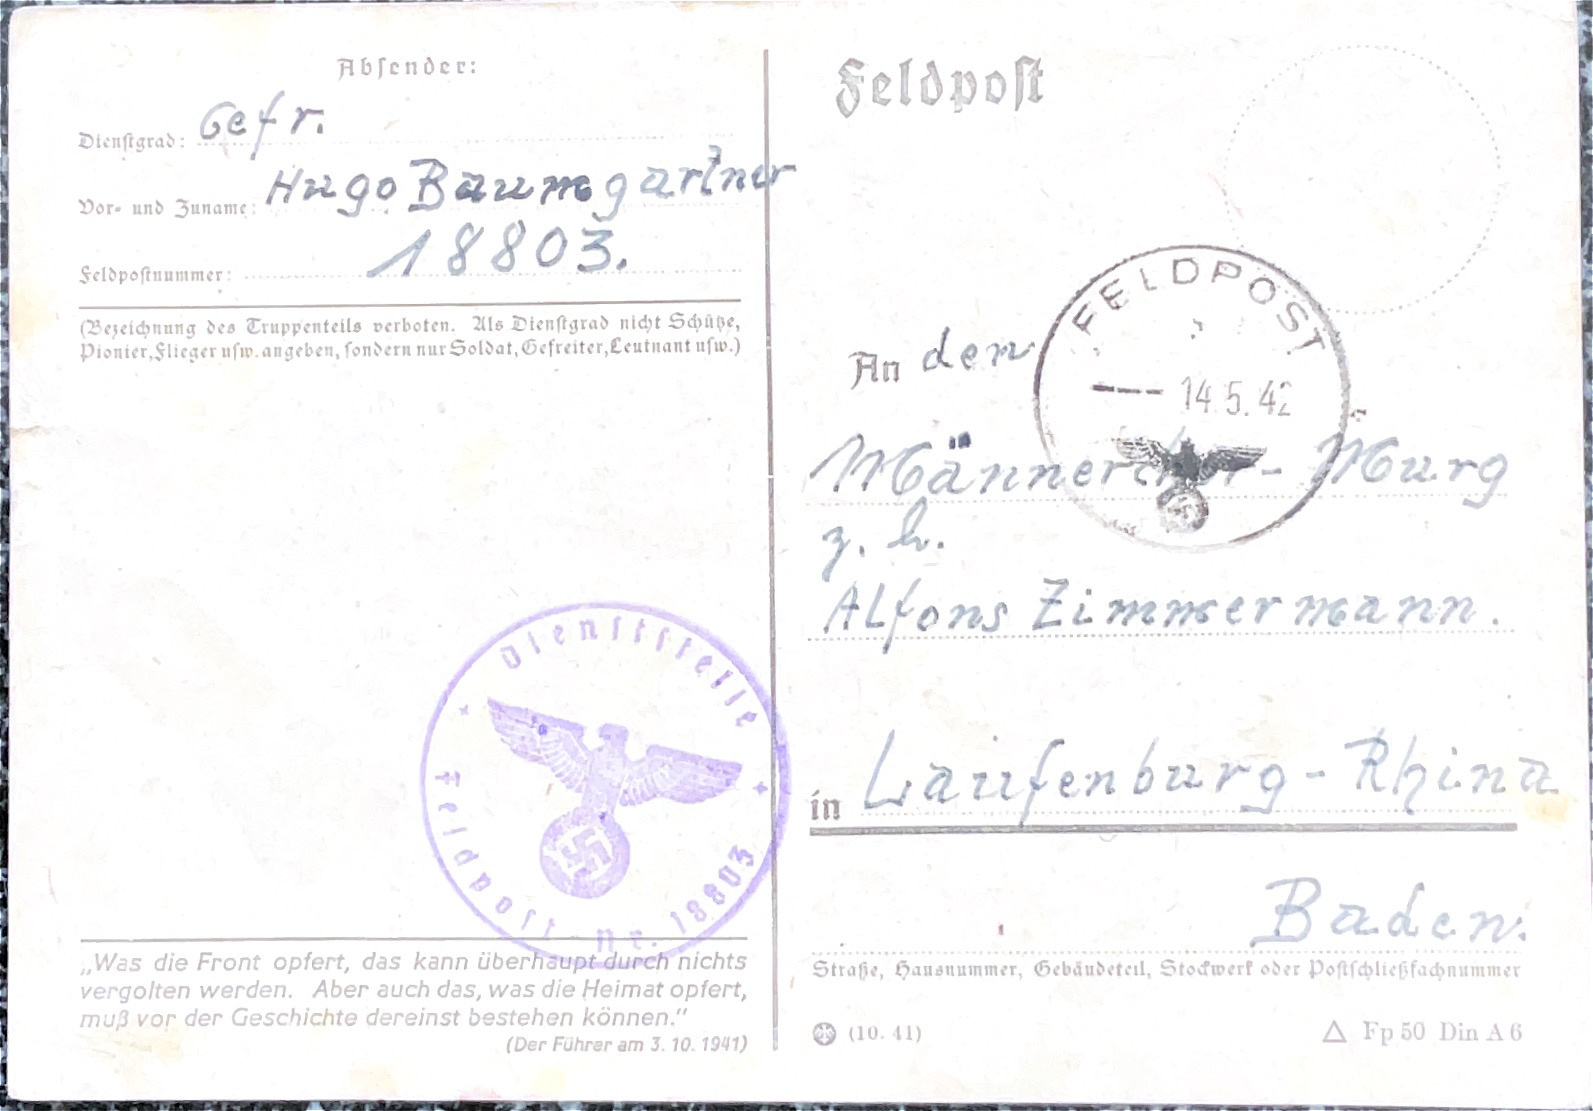 Absender:
Dienstgrad: Gefr.
Vor- und Zuname: Hugo Baumgartner
Feldpostnummer: 18803.
(Bezeichnung des Truppenteils verboten. Als Dienstgrad nicht Schütze,
Pionier, Flieger usw. angeben, sondern nur Soldat, Gefreiter, Leutnant usw.)
Dienststelle
Feldpost-Nr. 18803
„Was die Front opfert, das kann überhaupt durch nichts
vergolten werden. Aber auch das, was die Heimat opfert,
muß vor der Geschichte dereinst bestehen können.“
(Der Führer am 3. 10. 1941)
Feldpost
FELDPOST
--- 14.5.42
An den
Männerchor - Murg
z. h.
Alfons Zimmermann.
in Laufenburg - Rhina
Baden.
Straße, Hausnummer, Gebäudeteil, Stockwerk oder Postschließfachnummer
(10. 41)
△ Fp 50 Din A 6